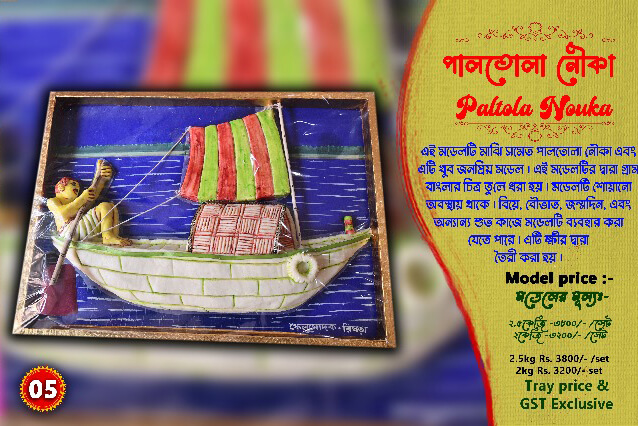 পালতোলা নৌকা
Paltola Nouka
এই মডেলটি মাঝি সমেত পালতোলা নৌকা এবং
এটি খুব জনপ্রিয় মডেল। এই মডেলটির দ্বারা গ্রাম
বাংলার চিত্র তুলে ধরা হয়। মডেলটি শোয়ানো
অবস্থায় থাকে। বিয়ে, বৌভাত, জন্মদিন, এবং
অন্যান্য শুভ কাজে মডেলটি ব্যবহার করা
যেতে পারে। এটি ক্ষীর দ্বারা
তৈরী করা হয়।
Model price :-
মডেলের মূল্যঃ-
২.৫কেজি -৩৮০০/- /সেট
২কেজি -৩২০০/- /সেট
2.5kg Rs. 3800/- /set
2kg Rs. 3200/- set
Tray price &
GST Exclusive
ফেলুমোদক - রিষড়া
05